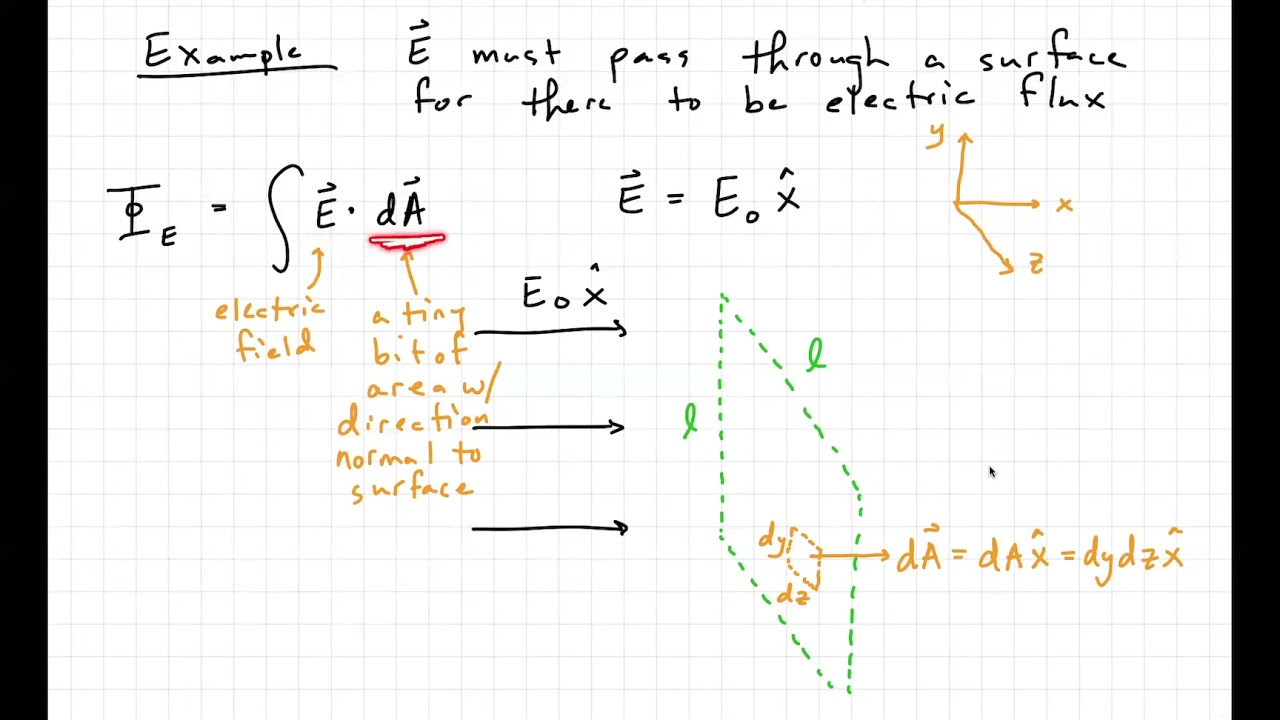 Example
E⃗ must pass through a surface
for there to be electric flux
Φ_E = ∫ E⃗ · dA⃗
E⃗ = E₀ x̂
y
x
z
electric
field
a tiny
bit of
area w/
direction
normal to
surface
E₀ x̂
l
l
dy
dz
dA⃗ = dA x̂ = dy dz x̂